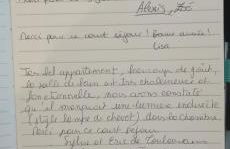 Alexis, Zoé
Merci pour ce court séjour ! Bonne année !
Lisa
Très bel appartement, beaucoup de goût,
la salle de bain est très chaleureuse et
fonctionnelle, nous avons constaté
qu'il manquait une lumière
(style lampe de chevet) dans la chambre.
Merci pour ce court séjour
Sylvie et Eric de Toulouse